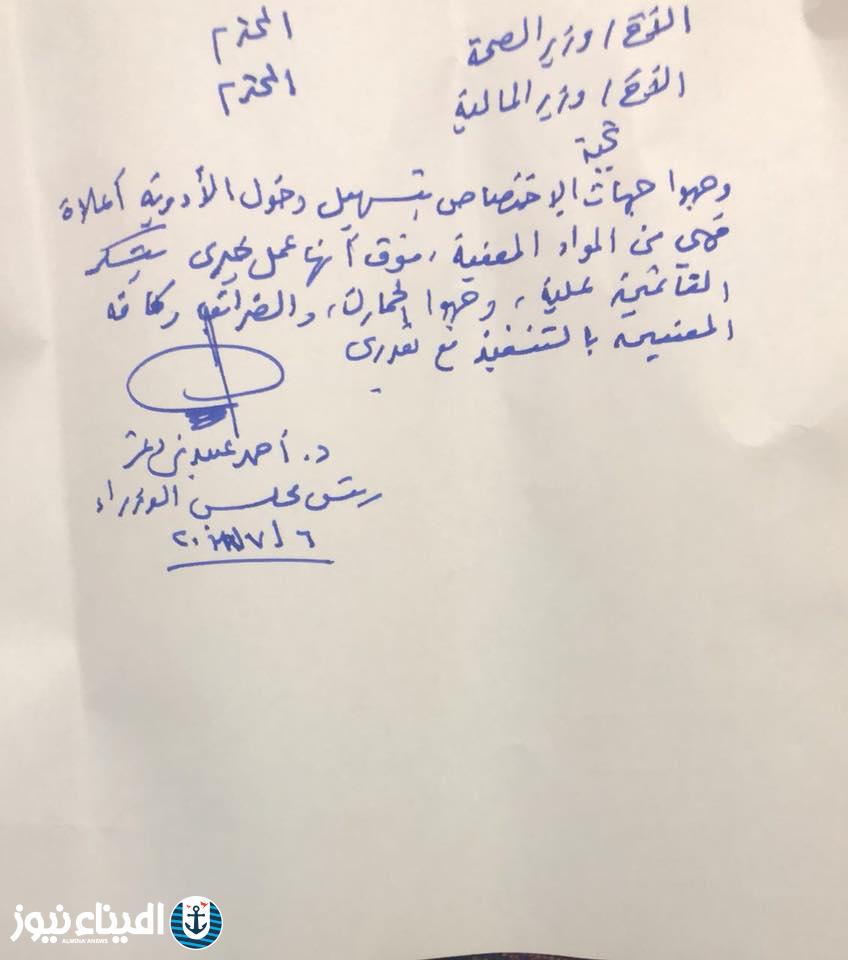 الأخ / وزير الصحة المحترم
الأخ / وزير المالية المحترم
تحية
وجهوا جهات الاختصاص بتسهيل دخول الأدوية أعلاه
فهي من المواد المعفية، فوق أنها عمل خيري يشكر
القائمين عليه، وجهوا الجمارك، والضرائب وكافه
المعنيين بالتنفيذ مع تقديري
د. أحمد عبيد بن دغر
رئيس مجلس الوزراء
٦ / ٧ /
الميناء نيوز
ALMINA'ANEWS